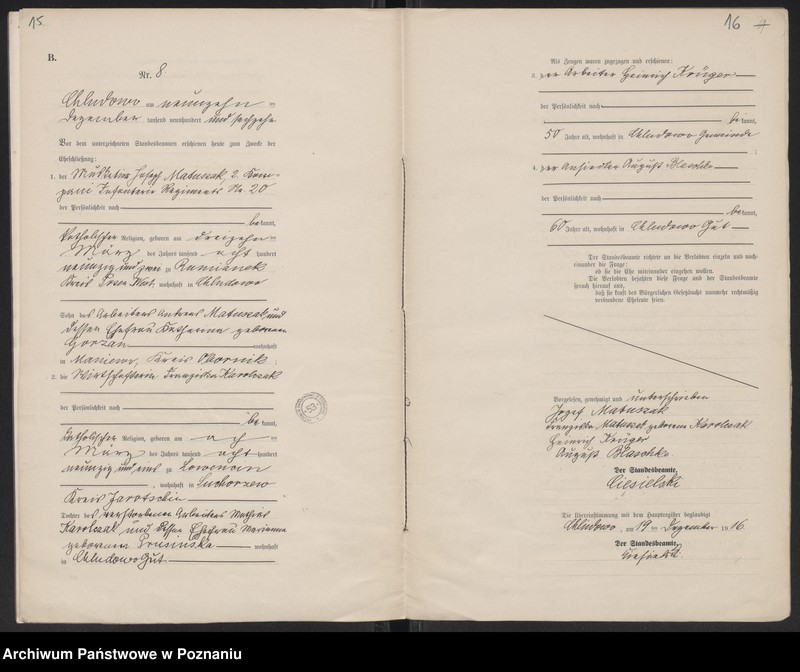 15
B.
Nr. 8
Chludowo am neunzehn ten
Dezember tausend neunhundert und sechzehn
Vor dem unterzeichneten Standesbeamten erschienen heute zum Zwecke der
Eheschließung:
1. der Musketier Josef Matuszak 2. Kom-
pani Infanterie Regiments Nr. 20
der Persönlichkeit nach
be kannt,
katholischer Religion, geboren am dreizehn ten
März des Jahres tausend acht hundert
neunzig und zwei zu
Kreis Posen West, wohnhaft in Chludowo
Sohn des Arbeiters Matuszak und
dessen Ehefrau Katharina geborenen
Gorzan wohnhaft
in Maniewo, Kreis Obornik.
2. die Wirtschafterin Franziska Karolczak
der Persönlichkeit nach
be kannt,
katholischer Religion, geboren am ten
März des Jahres tausend acht hundert
neunzig und zu
, wohnhaft in Suchorzew
Kreis Jarotschin
Tochter des verstorbenen Arbeiters
Karolczak und dessen Ehefrau Marianna
geborenen Prusinska wohnhaft
in Chludowo Gut
53
16
Als Zeugen waren zugezogen und erschienen:
3. der Arbeiter Heinrich Krüger
der Persönlichkeit nach
be kannt,
50 Jahre alt, wohnhaft in Chludowo Gemeinde
;
4. der Ansiedler August Blaschke
der Persönlichkeit nach
be kannt,
60 Jahre alt, wohnhaft in Chludowo Gut
Der Standesbeamte richtete an die Verlobten einzeln und nach-
einander die Frage:
ob sie die Ehe miteinander eingehen wollen.
Die Verlobten bejahten diese Frage und der Standesbeamte
sprach hierauf aus,
daß sie kraft des Bürgerlichen Gesetzbuchs nunmehr rechtmäßig
verbundene Eheleute seien.
Vorgelesen, genehmigt und unterschrieben
Jozef Matuszak
Franziska Matuszak geborene Karolczak
Heinrich Krüger
August Blaschke
Der Standesbeamte.
Ciesielski
Die Übereinstimmung mit dem Hauptregister beglaubigt
Chludowo, am 19 ten Dezember 1916
Der Standesbeamte.
Archiwum Państwowe w Poznaniu